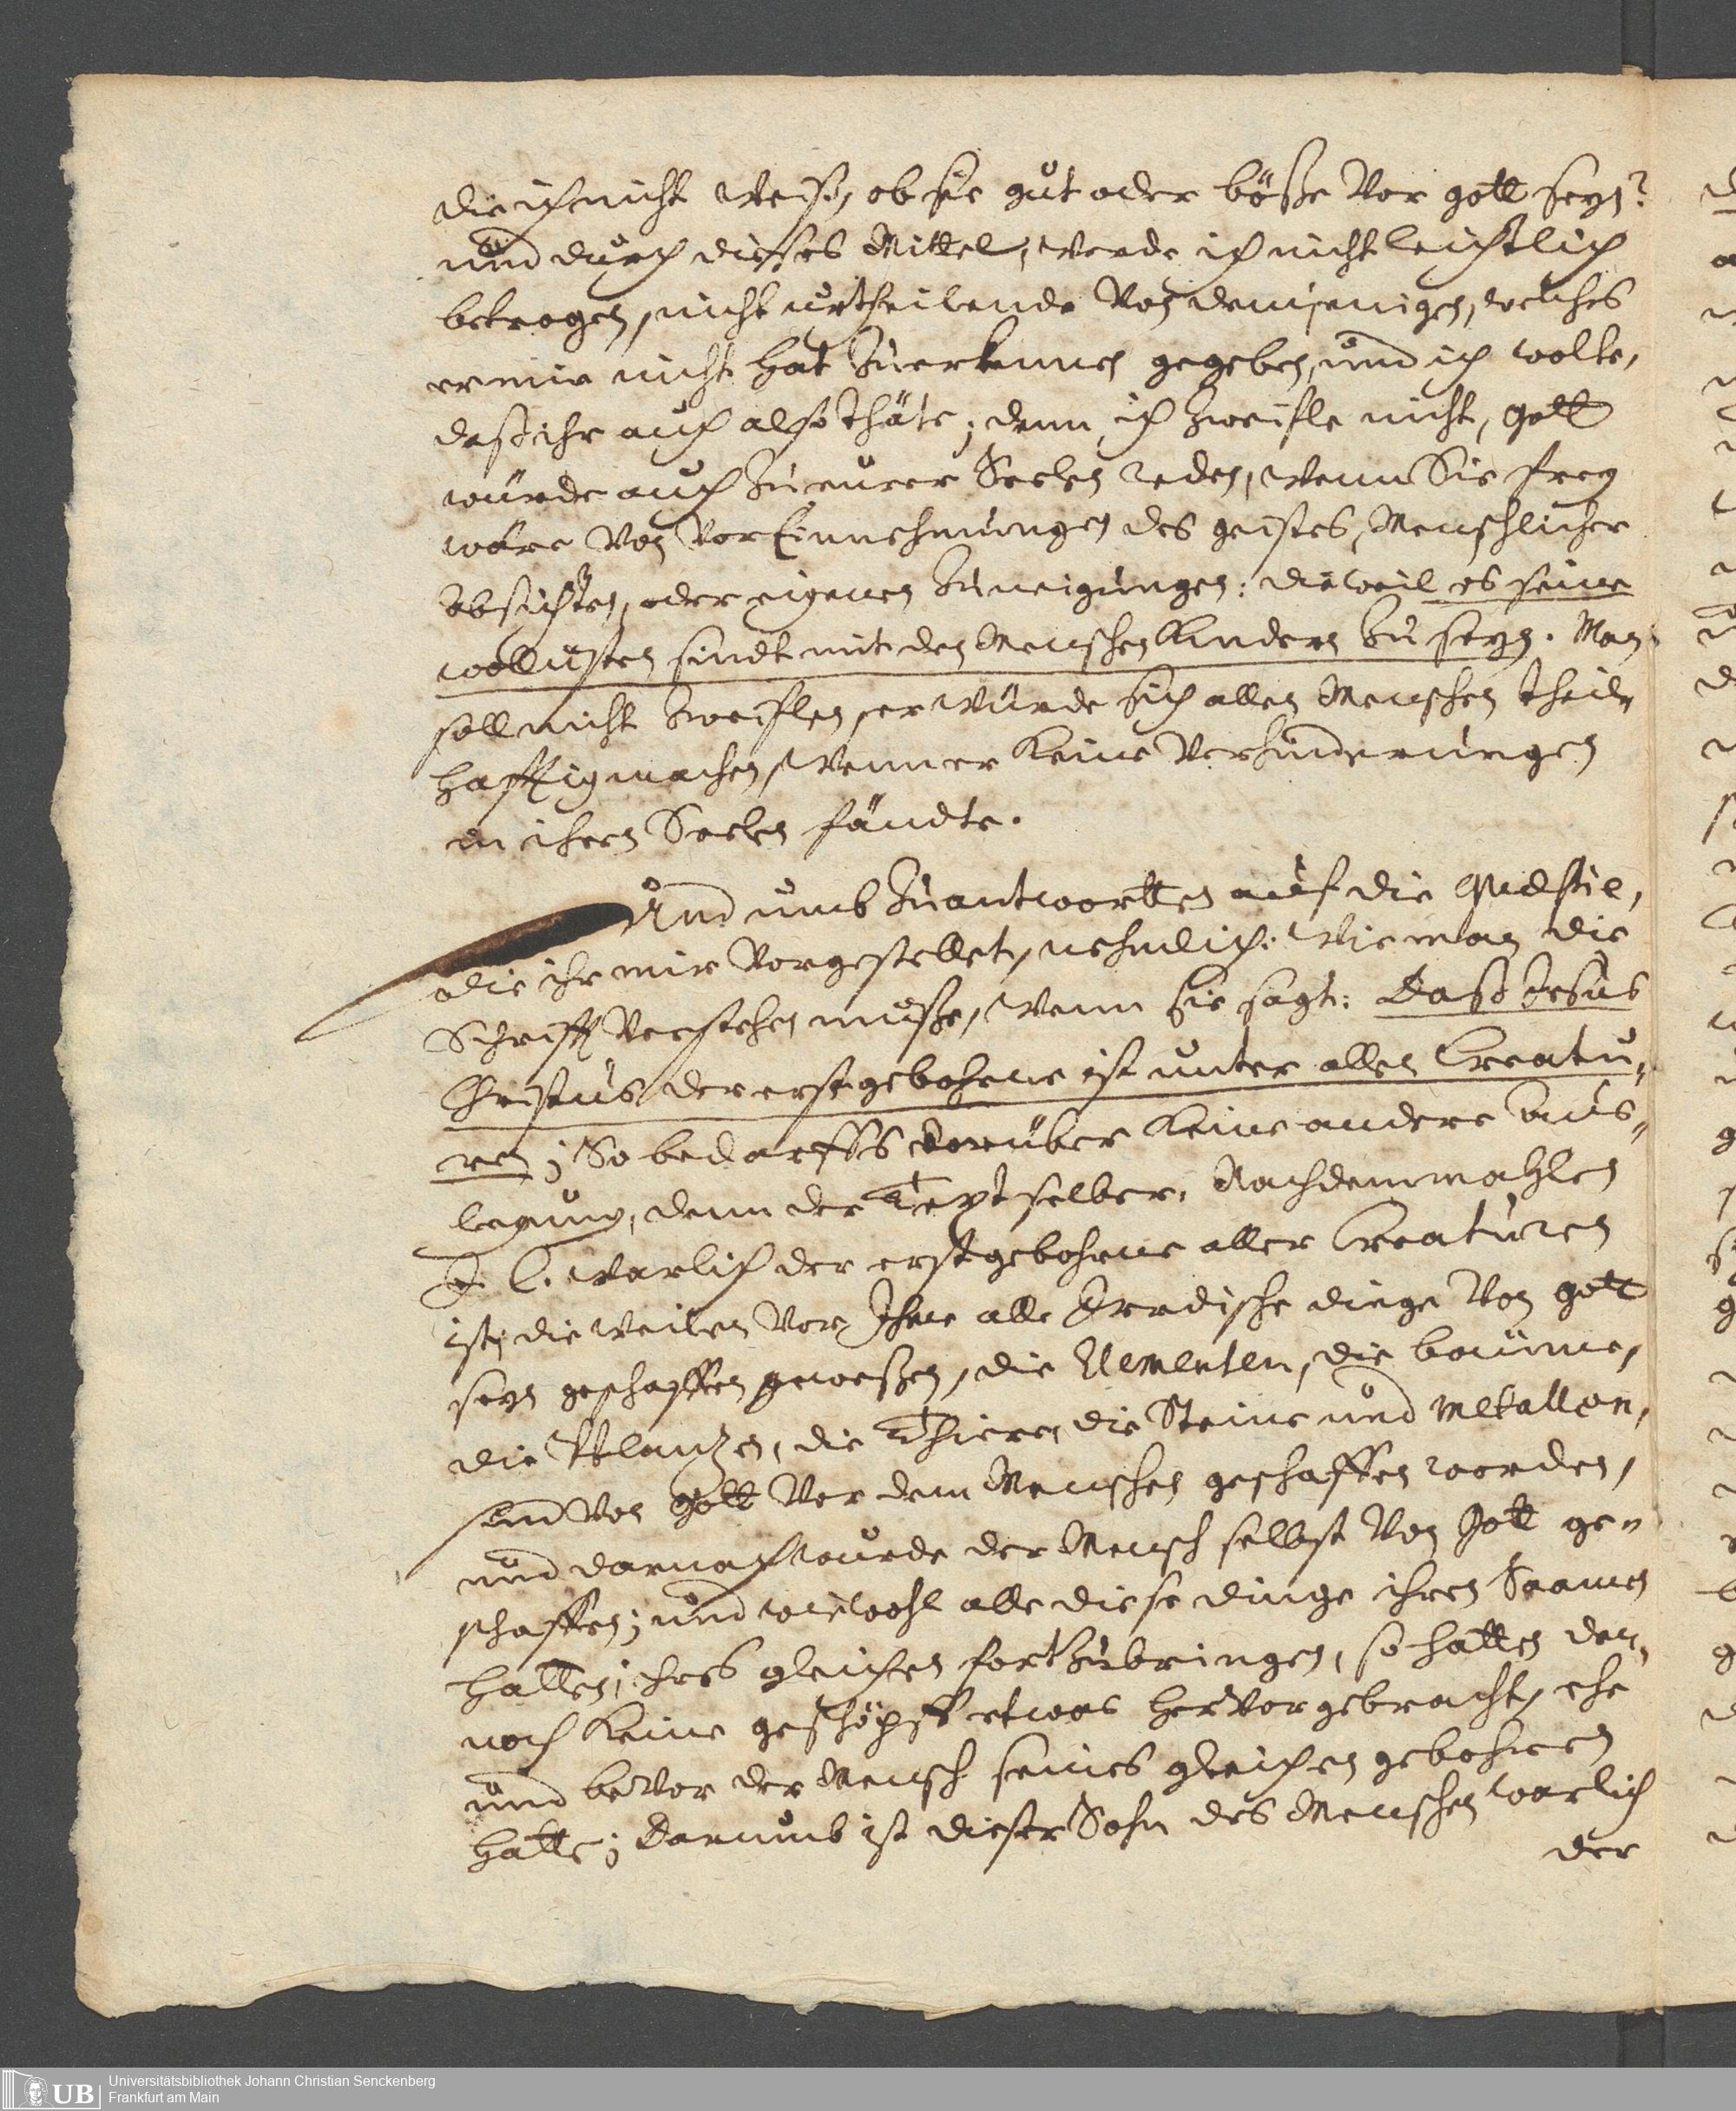 die ich nicht weiß, ob sie gut oder böße vor gott seyn?
und durch dießes Mittel, werde ich nicht leichtlich
betrogen, nicht urtheilende von demjenigen, welches
er mir nicht hat zuerkennen gegeben, und ich wolte,
daß ihr auch also thäte; denn ich zweifle nicht, gott
würde auch zu eurer Seelen reden, wenn Sie frey
wäre von vor Einnehmungen des geistes, Menschlicher
absichten, oder eigenen zuneigungen: dieweil es seine
wollusten sindt mit den Menschen Kindern zu seyn. Man
soll nicht zweiflen, er würde sich allen Menschen theil-
hafftig machen, wenn er keine verhinderungen
in ihren Seelen fändte.
Und umb zuantwortten auf die quæstie,
die ihr mir vorgestellet, nehmlich: wie man die
Schrifft verstehen muße, wenn sie sagt: Daß Jesus
Christus der erstgebohrne ist unter allen Creatu-
ren; So bedarffs darüber keine andere aus-
legung, denn der Text selber. Nachdemmahlen
J. C. warlich der erstgebohrne aller Creaturen
ist, dieweilen vor Ihne alle Irrdische dinge von gott
seyn geschaffen geweßen, die Elementen, die bäume,
die Pflantzen, die Thieren, die Steine und metallen,
sind von gott vor dem Menschen geschaffen worden,
und darnach wurde der Mensch selbst von Gott ge-
schaffen; und wiewohl alle diese dinge ihren Saamen
hatten, ihres gleichen fortzubringen, so hatten den-
noch keine geschöpff etwas hervorgebracht, ehe
und bevor der Mensch seines gleichen gebohren
hatte; Darumb ist dieser Sohn des Menschen warlich
der
UB Universitätsbibliothek Johann Christian Senckenberg
Frankfurt am Main